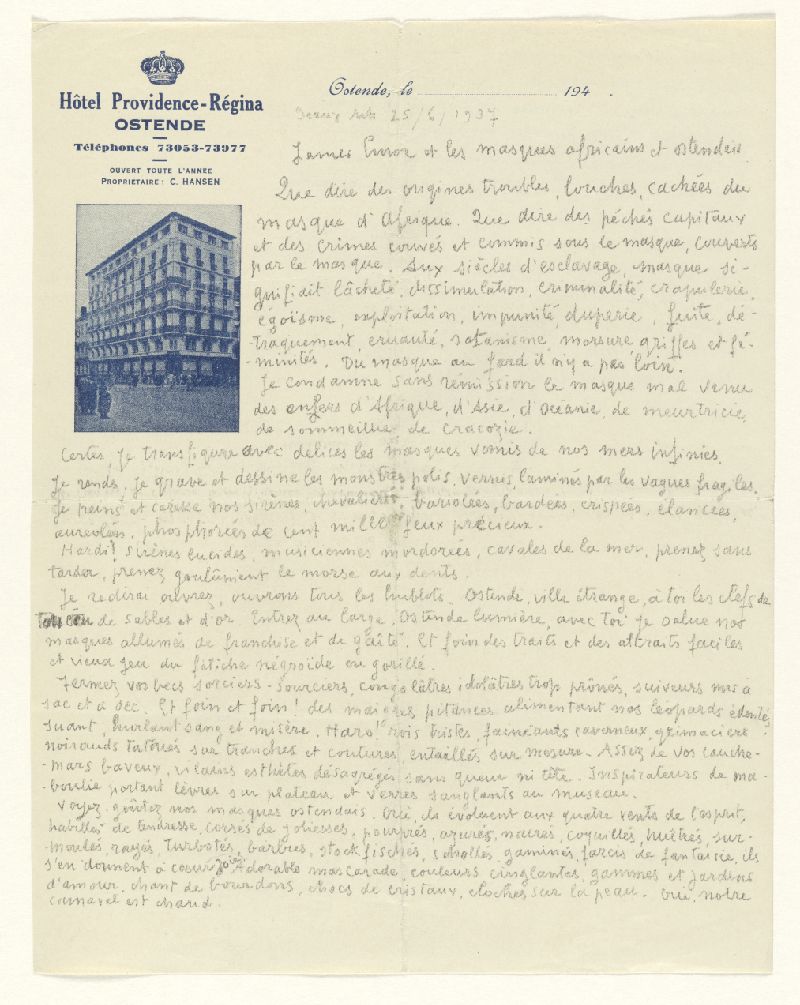 Hôtel Providence-Régina
OSTENDE
Téléphones 73053-73977
OUVERT TOUTE L'ANNÉE
PROPRIETAIRE: C. HANSEN
Ostende, le 194 .
25/6/1937
James Ensor et les masques africains et ostendais.
Que dire des origines troubles, louches, cachées du
masque d'Afrique. Que dire des péchés capitaux
et des crimes couvés et commis sous le masque, couverts
par le masque. Aux siècles d'esclavage, masque si-
gnifiait lâcheté, dissimulation, criminalité, crapulerie,
égoïsme, exploitation, impunité, duperie, fuite, dé-
traquement, cruauté, satanisme, morsure griffes et fé-
minités. Du masque au fard il n'y a pas loin.
Je condamne sans rémission le masque mal venu
des enfers d'Afrique, d'Asie, d'Océanie, de meurtricie,
de sommeillie, de Cracozie.
Certes, je transfigure avec délices les masques vomis de nos mers infinies.
Je rends, je grave et dessine les monstres polis, vernis, laminés par les vagues fragiles.
Je peins et caresse nos sirènes, chevalières, bariolées, bardées, crispées, élancées,
auréolées, phosphorées de cent mille feux précieux.
Hardi! Sirènes lucides, musiciennes mordorées, cavales de la mer, prenez sans
tarder, prenez goulûment le morse aux dents.
Je redirai ouvrez, ouvrons tous les hublots. Ostende, ville étrange, à toi les clefs de
de sables et d'or. Entrez au large, Ostende lumière, avec toi je salue nos
masques allumés de franchise et de gaîté. Et foin des traits et des attraits faciles
et vieux jeu du fétiche négroïde ou gorille.
Fermez vos becs sorciers-sourciers, congolâtres idolâtres trop prônés, suiveurs mis à
sac et à sec. Et foin et foin! des maigres pitances alimentant nos léopards édentés
suant, hurlant sang et misère. Haro! rois tristes, fainéants caverneux grimaciers
noirauds tatoués sur tranches et coutures, entaillés sur mesure. Assez de vos cauche-
mars baveux, vilains esthètes désagrégés sans queue ni tête. Inspirateurs de ma-
boulie portant lèvres sur plateau et verres sanglants au museau.
Voyez, goûtez nos masques ostendais. Oui, ils évoluent aux quatre vents de l'esprit,
habillés de tendresse, corsés de joliesses, pourprés, azurés, nacrés, coquillés, huîtrés, sur-
moulés, rayés, turbotés, barbués, stockfischés, schollés, gaminés, farcis de fantaisie, ils
s'en donnent à cœur joie. Adorable mascarade, couleurs cinglantes, gammes et jardins
d'amour, chant de bourdons, chocs de cristaux, cloches sur la peau. Oui, notre
carnavel est chaud.